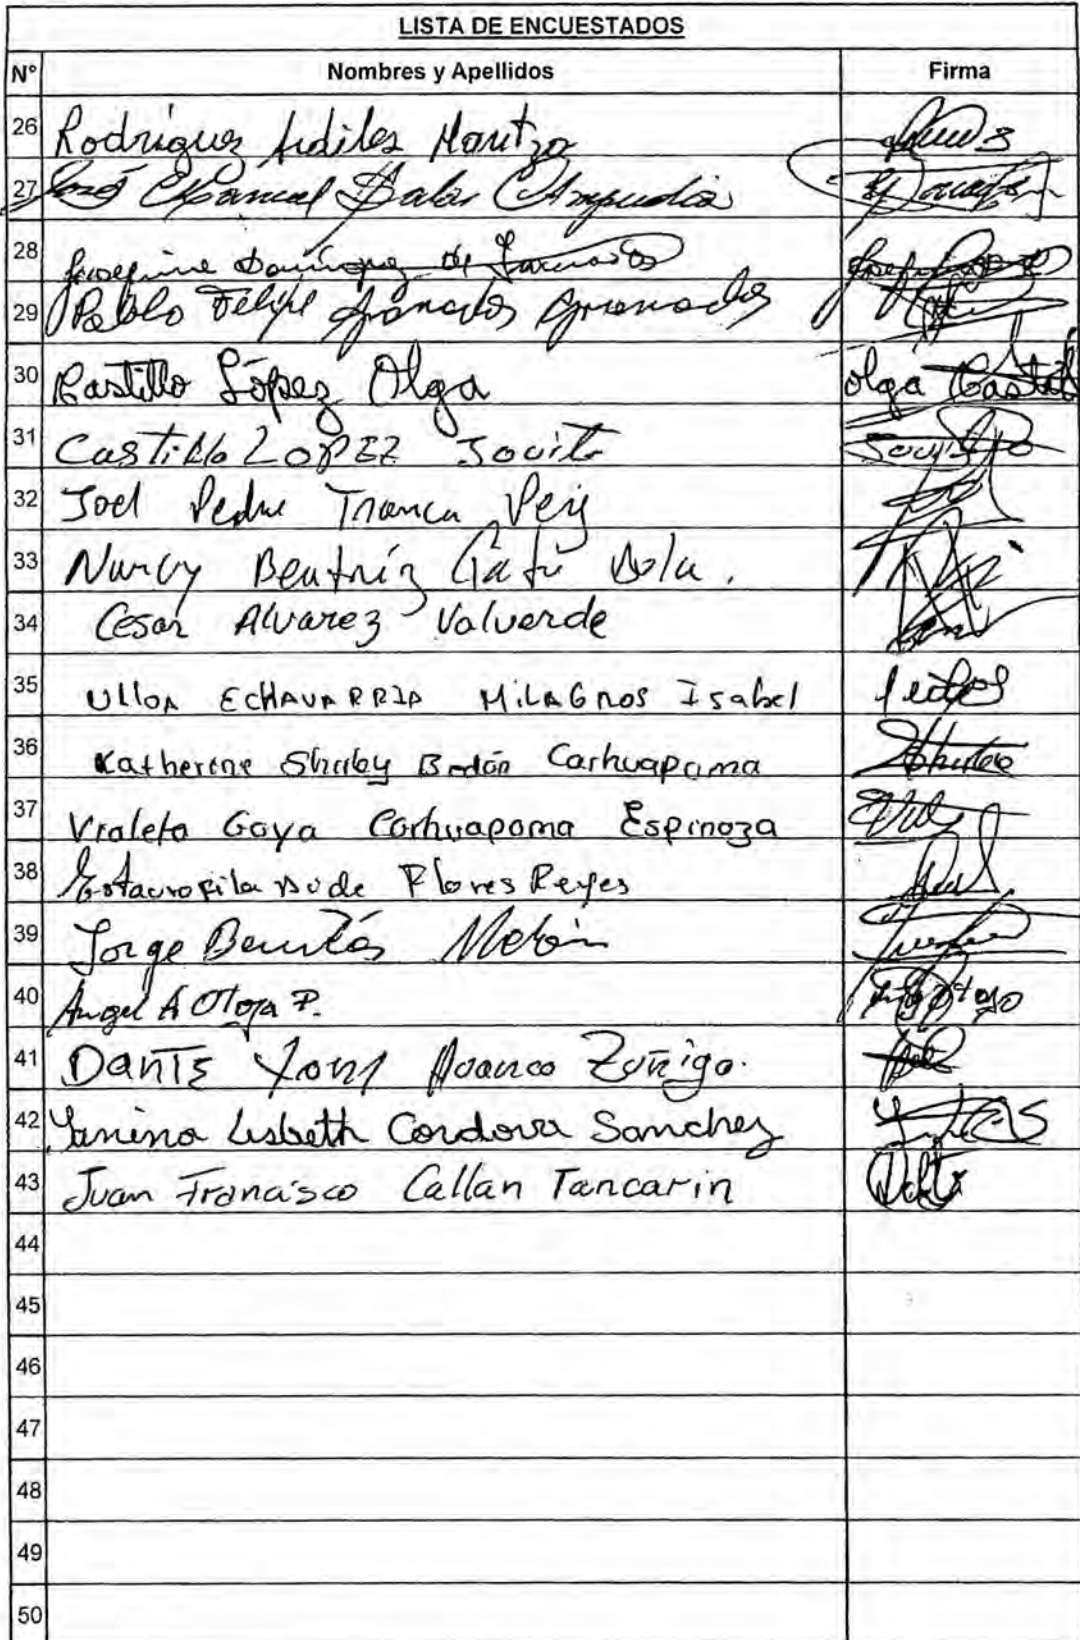 LISTA DE ENCUESTADOS
N° Nombres y Apellidos Firma
26 Rodríguez Ardiles Maritza
27 José Manuel Salas Ampudia
28 Josefina Domínguez de Granados
29 Pablo Felipe Granados Granados
30 Castillo López Olga Olga Castill
31 CastiLlo LOPEZ Jovita
32 Joel Pedro Tranca
33 Nancy Beatríz
34 Cesar Alvarez Valverde
35 Ulloa ECHAVARRIA MiLAGROS Isabel
36 Katherine Shirley Carhuapoma
37 Violeta Goya Carhuapoma Espinoza
38 Flores Reyes
39 Jorge Benites
40 Angel A P.
41 DANTE Yony Huanco Zuñiga.
42 Yanina Lisbeth Cordova Sanchez
43 Juan Francisco Callan Tancarin
44
45
46
47
48
49
50